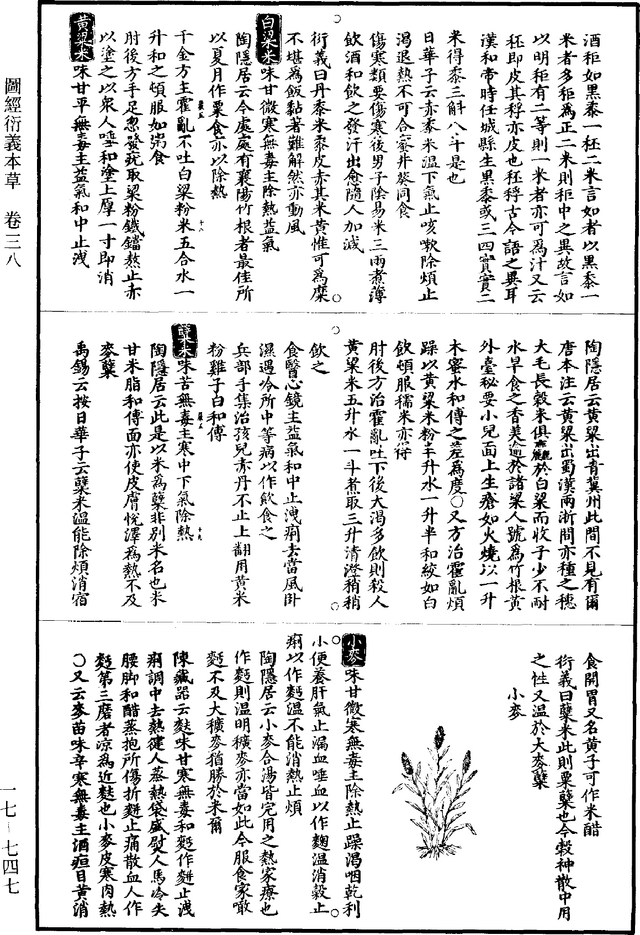 酒秫如黑黍一秠二米言如者以黑黍一
米者多秫為正二米則秫中之異故言如
以明秬有二等則一米者亦可為汁又云
秠即皮其稃亦皮也秠稃古今語之異耳
漢和帝時任城縣生黑黍或三四實實二
米得黍三斛八斗是也
日華子云赤黍米溫下氣止咳嗽除煩止
渴退熱不可合蜜并葵同食
傷寒類要傷寒後男子陰易米三兩煮薄
飲酒和飲之發汗出愈隨人加減
衍義曰丹黍米黍皮赤其米黃惟可為糜
不堪為飯黏著難解然亦動風
白粱米味甘微寒無毒主除熱益氣
陶隱居云今處處有襄陽竹根者最佳所
以夏月作粟食亦以除熱
千金方主霍亂不吐白粱粉米五合水一
升和之頓服如粥食
肘後方手足忽發疣取粱粉鐵鐺熬止赤
以塗之以衆人唾和塗上厚一寸即消
黃粱米味甘平無毒主益氣和中止洩
陶隱居云黃粱出青冀州此間不見有爾
唐本注云黃粱出蜀漢商浙間亦種之穗
大毛長穀米俱麤於白粱而收子少不耐
水旱食之香美逾於諸粱人號為竹根黃
外臺秘要小兒面上生瘡如火燒以一升
末蜜水和傅之差為度○又方治霍亂煩
躁以黃粱米粉半升水一升半和絞如白
飲頓服糯米亦得
肘後方治霍亂吐下後大渴多飲則殺人
黃粱米五升水一斗煮取三升清澄稍稍
飲之
食醫心鏡主益氣和中止洩痢去當風卧
濕遇冷所中等病以作飲食之
兵部手集治孩兒赤丹不止土翻用黃米
粉雞子白和傅
糵米味苦無毒主寒中下氣除熱
陶隱居云此是以米為糵非別米名也末
甘米脂和傅面亦使皮膚悅澤為熱不及
麥糵
禹錫云按日華子云糵米溫能除煩消宿
食開胃又名黃子可作米醋
衍義曰糵米此則粟糵也今穀神散中用
之性又溫於大麥糵
小麥
小麥味甘微寒無毒主除熱止躁渴咽乾利
小便養肝氣止漏血唾血以作麴溫消穀止
痢以作麪溫不能消熱止煩
陶隱居云小麥合湯皆完用之熱家療也
作麪則溫明穬麥亦當如此今服食家噉
麪不及大穬麥猶勝於米爾
陳藏器云麩味甘寒無毒和麪作餅止洩
痢調中去熱健人蒸熱袋盛熨人馬冷失
腰脚和醋蒸抱所傷折處止痛散血人作
麪第三磨者涼為近麩也小麥皮寒肉熱
○又云麥苗味辛寒無毒主酒疸目黃消
圖經衍義本草 卷三八
一七-七四七